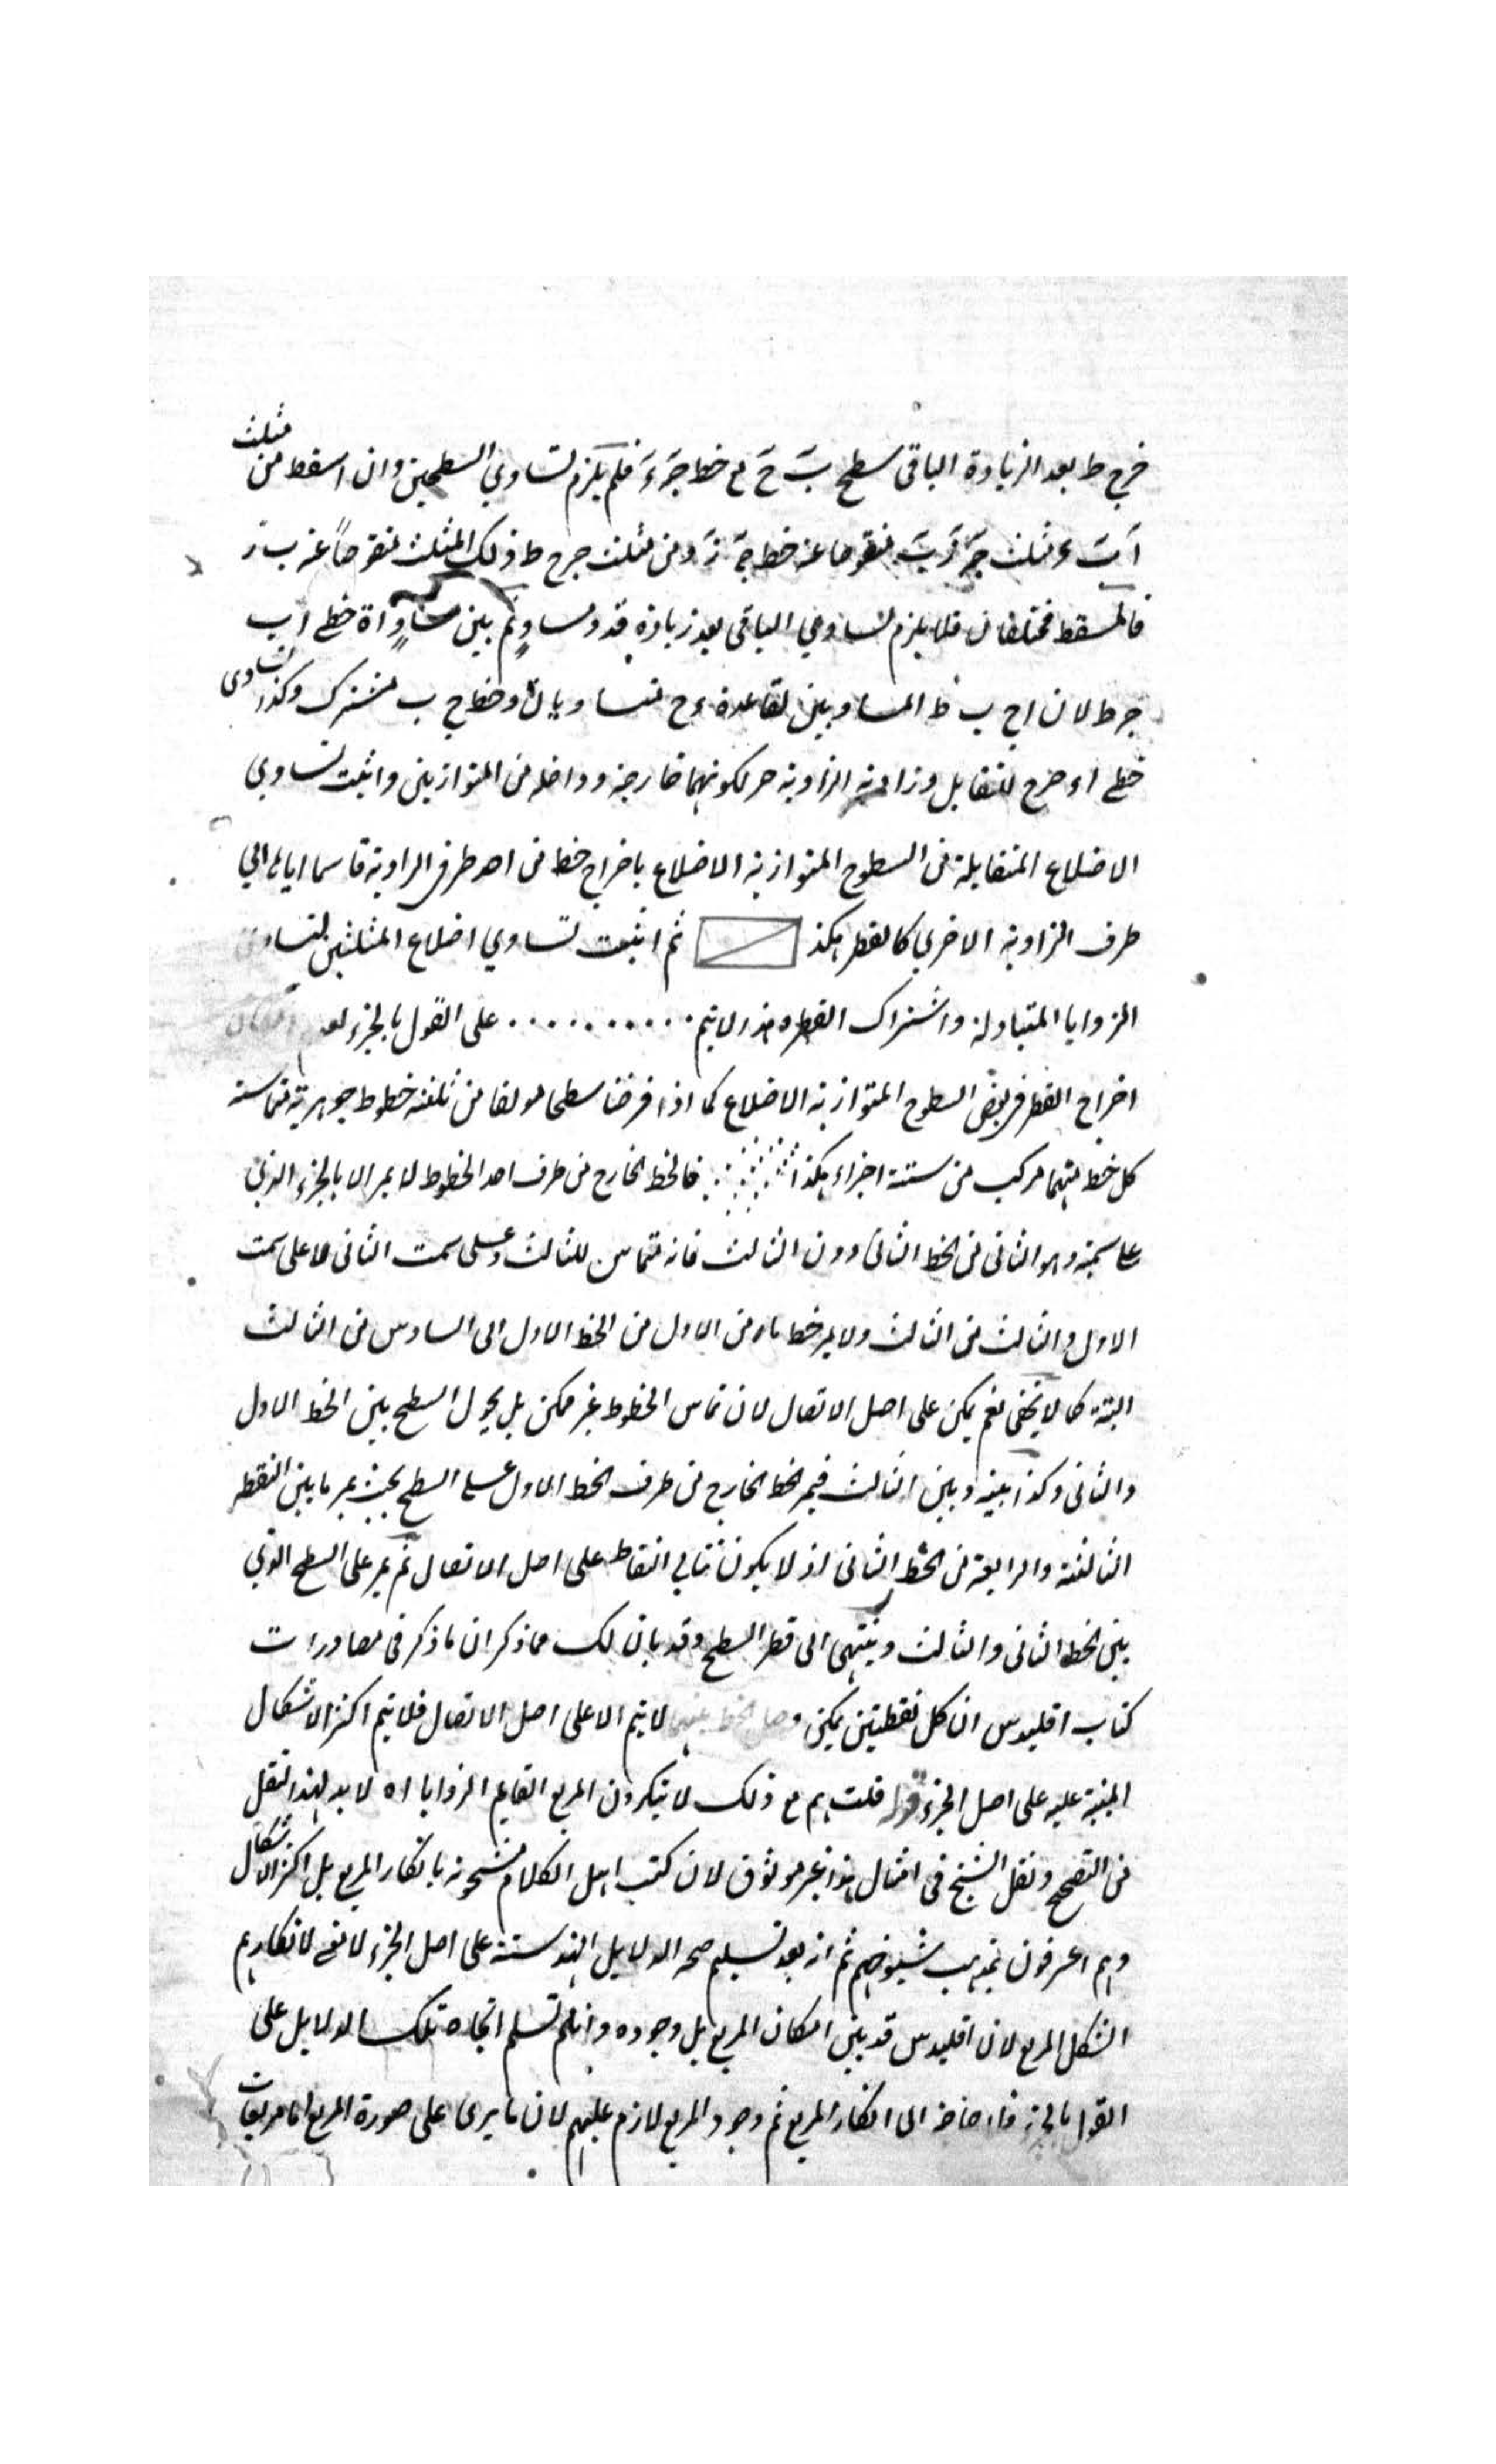 خرج ط بعد الزيادة الباقى سطح ب ح مع خط جزء فلم يلزم تساوي السطحين وان اسقط من مثلث
منقوصا عن خط ومن مثلث جرح ط ذلك المثلث منقوصاً عنه ب ز
فالمسقط مختلفان فلا يلزم تساوي الباقى بعد زيادة قدر مساو ثم بين مساواة خطى ا ب
لان ا ح ب ط المساويين لقاعدة ء ح متساويان وخط ح ب مشترك وكذا تساوى
خطى للتقابل وزاوية الزاوية لكونهما خارجة وداخلة من المتوازيين واثبت تساوي
الاضلاع المتقابلة من السطوح المتوازية الاضلاع باخراج خط من احد طرفى الزاوية قاسما اياها الى
طرف الزاوية الاخرى كالقطر هكذا ثم اثبت تساوي اضلاع المثلثين لتساوى
الزوايا المتبادلة واشتراك القطر وهذا لا يتم . . . . . . . . . . على القول بالجزء لعدم امكان
اخراج القطر فى بعض السطوح المتوازية الاضلاع كما اذا فرضنا سطحا مولفا من ثلثة خطوط جوهرية متماسة
كل خط منها مركب من ستة اجزاء هكذا فالخط الخارج من طرف احد الخطوط لا يمر الا بالجزء الذى
على سمته وهو الثانى من الخط الثانى دون الثالث فانه مماس للثالث وعلى سمت الثانى لا على سمت
الاول والثالث من الثالث ولا يمر خط مار من الاول من الخط الاول الى السادس من الثالث
البتة كما لا يخفى نعم يمكن على اصل الاتصال لان تماس الخطوط غير ممكن بل يحول السطح بين الخط الاول
والثانى وكذا بينه وبين الثالث فيمر الخط الخارج من طرف الخط الاول على السطح بحيث يمر ما بين النقطة
الثالثة والرابعة من الخط الثانى اذ لا يكون تتالي النقاط على اصل الاتصال ثم يمر على السطح الذي
بين الخط الثانى والثالث وينتهى الى قطر السطح وقد بان لك مما ذكر ان ما ذكر فى مصادرات
كتاب اقليدس ان كل نقطتين يمكن وصل الخط بينهما لا يتم الا على اصل الاتصال فلا يتم اكثر الاشكال
المبنية عليه على اصل الجزء قوله قلت هم مع ذلك لا ينكرون المربع القايم الزوايا اه لا بد لهذا النقل
من التصحيح ونقل الشيخ فى امثال هذا غير موثوق لان كتب اهل الكلام مشحونة بانكار المربع بل اكثر الاشكال
وهم اعرفون بمذهب شيوخهم ثم انه بعد تسليم صحة الدلايل الهندسية على اصل الجزء لا نفع لانكارهم
الشكل المربع لان اقليدس قد بين امكان المربع بل وجوده وان لم تسلم اتجاه تلك الدلايل على
القول بالجزء فلا حاجة الى انكار المربع ثم وجود المربع لازم عليهم لان ما يرى على صورة المربع اما مربعات